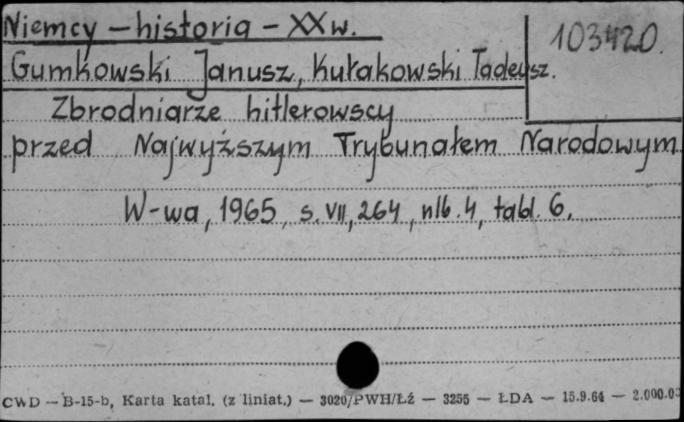 Niemcy – historia – XX w.
103420.
Gumkowski Janusz, Kułakowski Tadeusz.
Zbrodniarze hitlerowscy
przed Najwyższym Trybunałem Narodowym
W-wa, 1965, s. VII, 264, nlb. 4, tabl. 6.
CWD — B-15-b, Karta katal. (z liniat.) — 3020/PWH/Łź — 3255 — ŁDA — 15.9.64 — 2.000.00